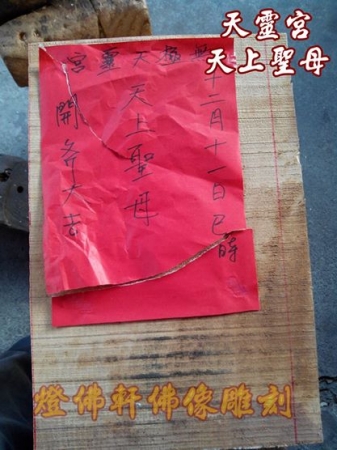 天靈宮
天上聖母
宮靈天
十二月十一日巳時
天上聖母
開斧大吉
燈佛軒佛像雕刻